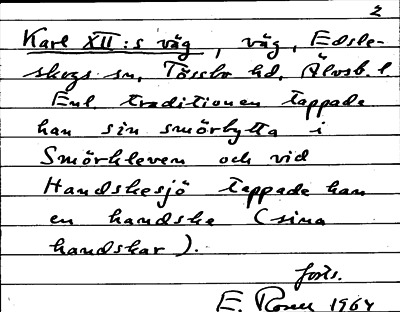 2
Karl XII:s väg, väg, Edsle-
skogs sn, Tössbo hd, Älvsb. l.
Enl. traditionen tappade
han sin smörbytta i
Smörkleven och vid
Handskesjö tappade han
en handske (sina
handskar).
forts.
E. Rosen 1964